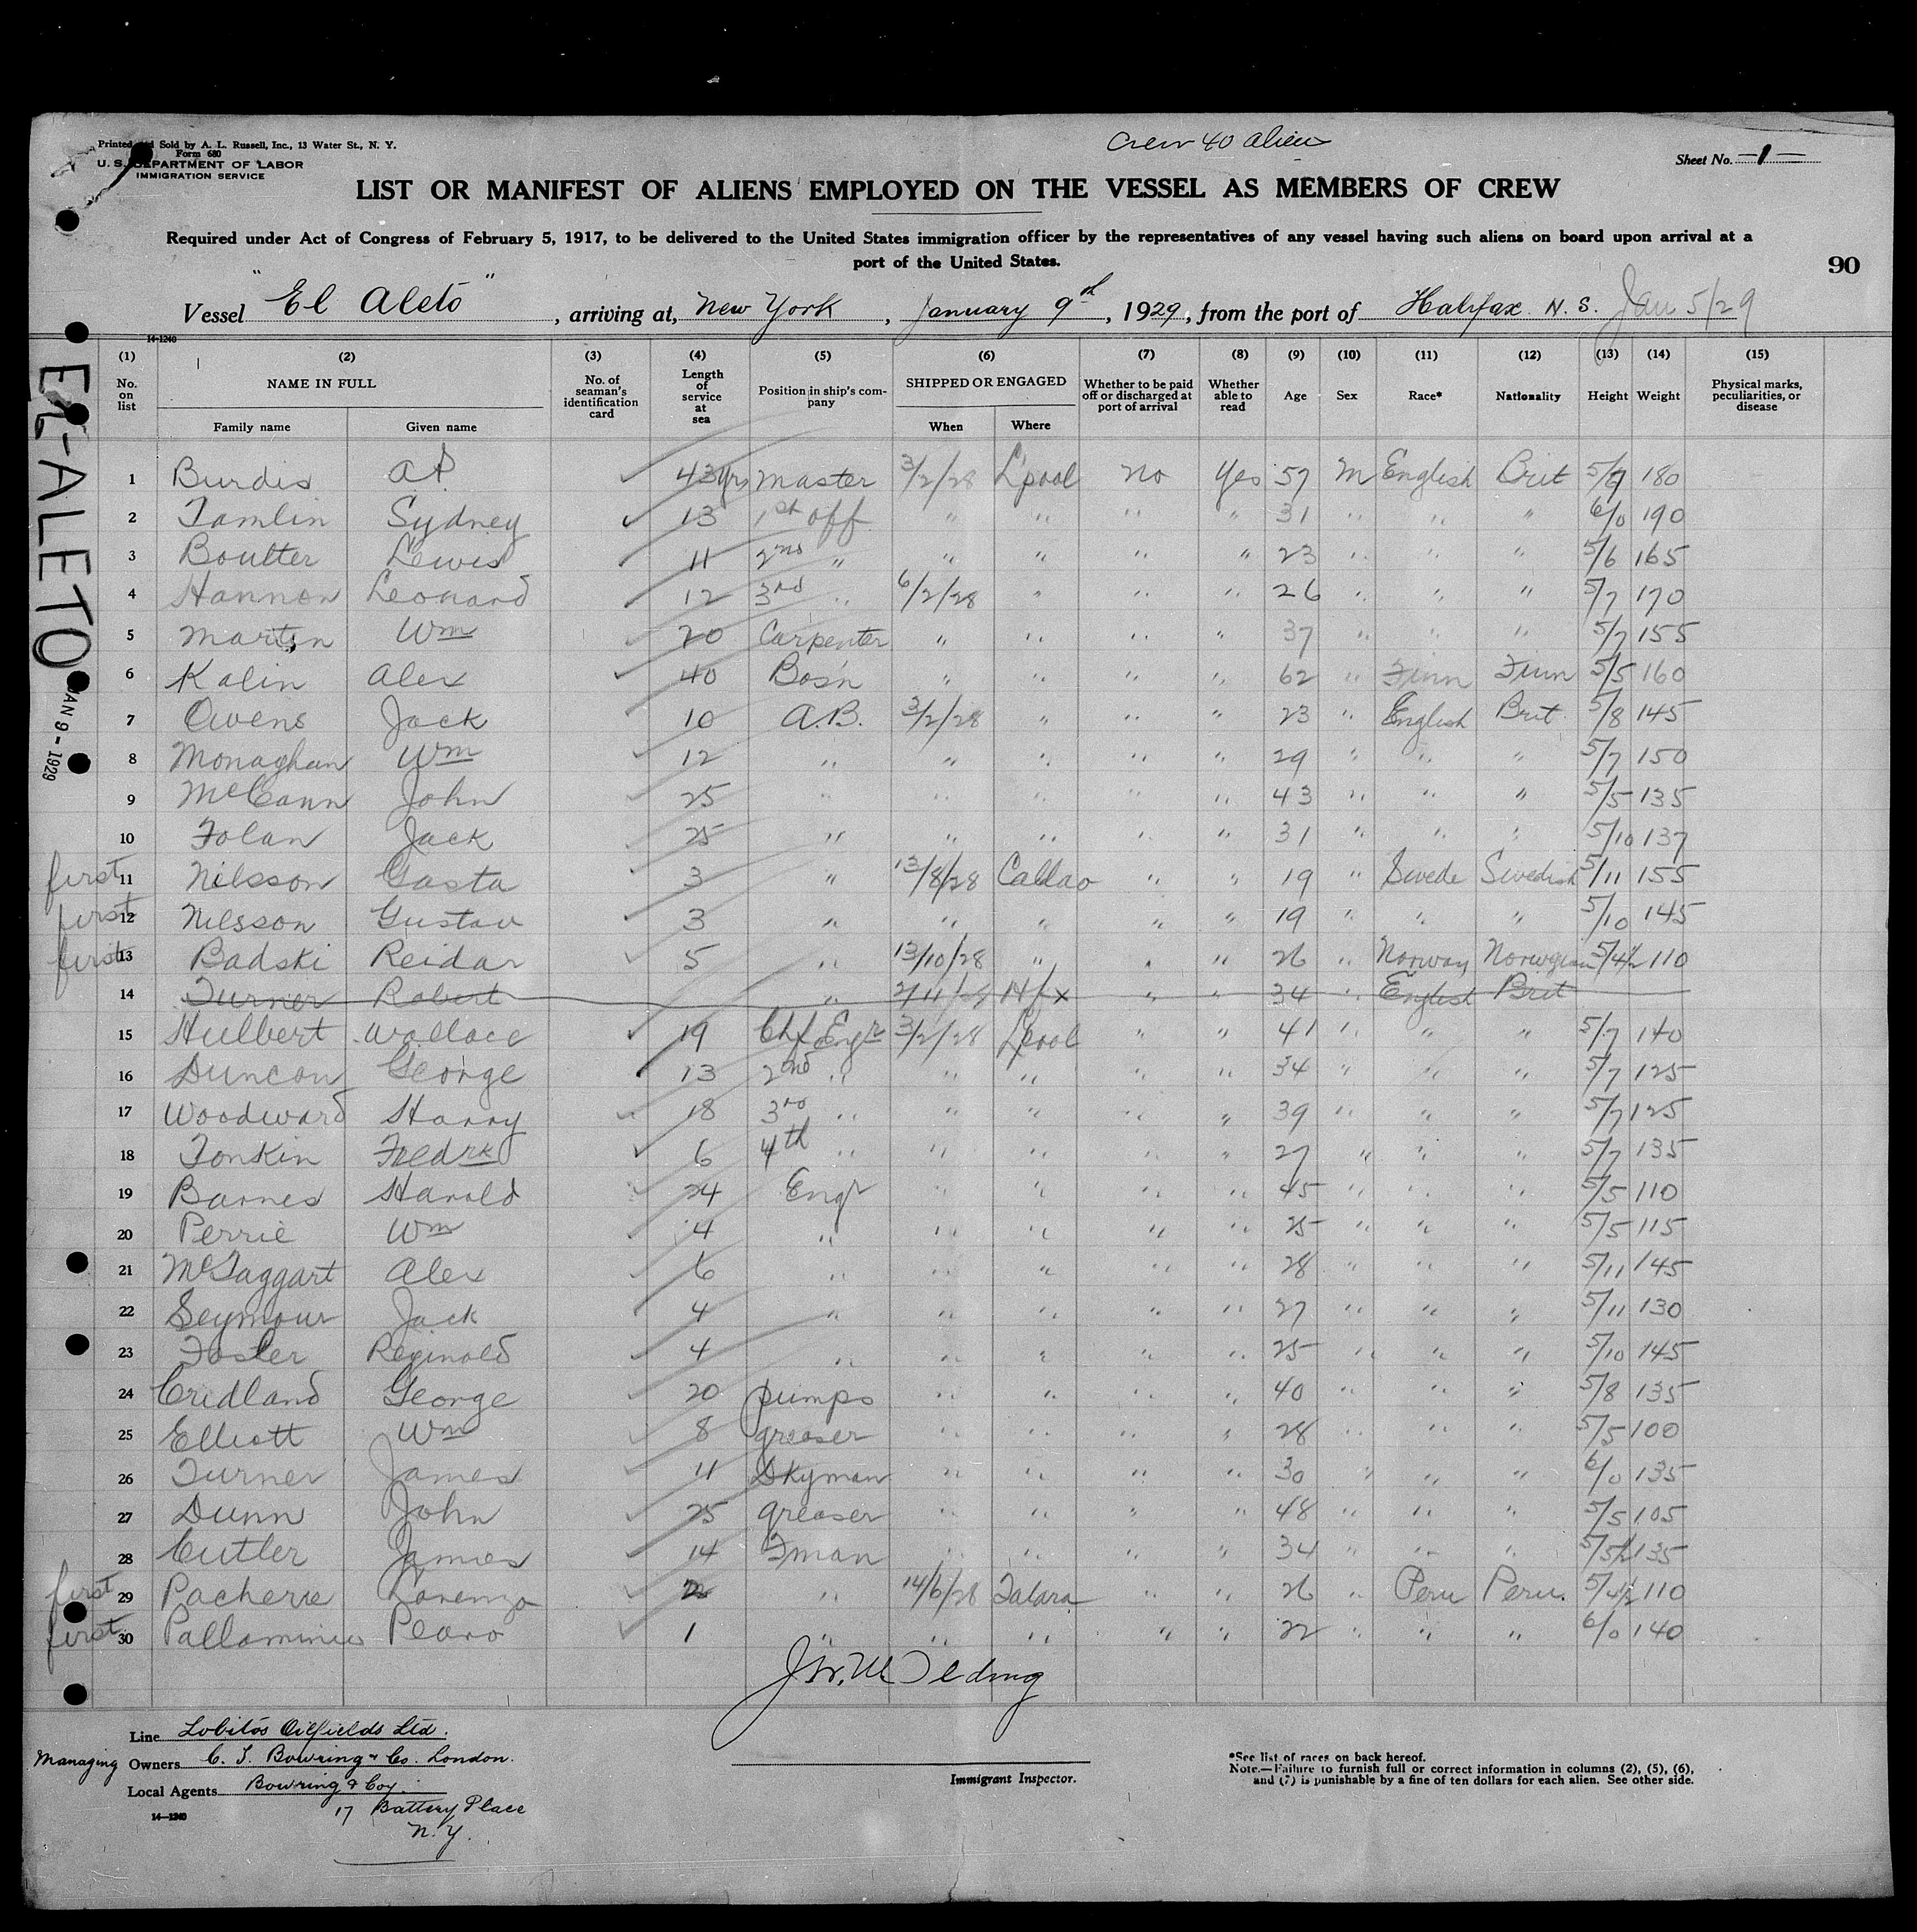 Crew 40 alien
Printed and Sold by A. L. Russell, Inc., 13 Water St., N. Y.
Form 680
U. S. DEPARTMENT OF LABOR
IMMIGRATION SERVICE
Sheet No. -1-
LIST OR MANIFEST OF ALIENS EMPLOYED ON THE VESSEL AS MEMBERS OF CREW
Required under Act of Congress of February 5, 1917, to be delivered to the United States immigration officer by the representatives of any vessel having such aliens on board upon arrival at a
port of the United States.
90
Vessel "El Aleto", arriving at, New York, January 9th, 1929, from the port of Halifax N. S. Jan 5/29
14-1240
(1) (2) (3) (4) (5) (6) (7) (8) (9) (10) (11) (12) (13) (14) (15)
No. on list NAME IN FULL Family name Given name No. of seaman's identification card Length of service at sea Position in ship's company SHIPPED OR ENGAGED When Where Whether to be paid off or discharged at port of arrival Whether able to read Age Sex Race* Nationality Height Weight Physical marks, peculiarities, or disease
EL-ALETO
JAN 9 - 1929
1 Burdis A P ✓ 43yrs Master 3/2/28 L'pool No Yes 57 M English Brit 180
2 Tamlin Sydney ✓ 13 1st off " " " " 31 " " " 6/0 190
3 Boulter Lewis ✓ 11 2nd " " " " " 23 " " " 5/6 165
4 Hannon Leonard ✓ 12 3rd " 6/2/28 " " " 26 " " " 5/7 170
5 Martin Wm ✓ 20 Carpenter " " " " 37 " " " 5/7 155
6 Kalin Alex ✓ 40 Bos'n " " " " 62 " Finn Finn 5/5 160
7 Owens Jack ✓ 10 A.B. 3/2/28 " " " 23 " English Brit 5/8 145
8 Monaghan Wm ✓ 12 " " " " " 29 " " " 5/7 150
9 McCann John ✓ 25 " " " " " 43 " " " 5/5 135
10 Folan Jack ✓ 25 " " " " " 31 " " " 5/10 137
first 11 Nilsson Gosta ✓ 3 " 13/8/28 Callao " " 19 " Swede Swedish 5/11 155
first 12 Nilsson Gustav ✓ 3 " " " " " 19 " " " 5/10 145
first 13 Badski Reidar ✓ 5 " 13/10/28 " " " 26 " Norway Norwegian 5/4½ 110
14 Turner Robert " 2/11/28 Hfx " " 34 " English Brit
15 Hulbert Wallace ✓ 19 Chf Engr 3/2/28 L'pool " " 41 " " " 5/7 140
16 Duncan George ✓ 13 2nd " " " " " 34 " " " 5/7 125
17 Woodward Harry ✓ 18 3rd " " " " " 39 " " " 5/7 125
18 Tonkin Fredrk ✓ 6 4th " " " " " 27 " " " 5/7 135
19 Barnes Harold ✓ 24 Engr " " " " 45 " " " 5/5 110
20 Perrie Wm ✓ 4 " " " " " 25 " " " 5/5 115
21 McTaggart Alex ✓ 6 " " " " " 28 " " " 5/11 145
22 Seymour Jack ✓ 4 " " " " " 27 " " " 5/11 130
23 Foster Reginald ✓ 4 " " " " " 25 " " " 5/10 145
24 Cridland George ✓ 20 pumps " " " " 40 " " " 5/8 135
25 Elliott Wm ✓ 8 greaser " " " " 28 " " " 5/5 100
26 Turner James ✓ 11 Dkyman " " " " 30 " " " 6/0 135
27 Dunn John ✓ 25 greaser " " " " 48 " " " 5/5 105
28 Cutler James ✓ 14 Fman " " " " 34 " " " 5/5½ 135
first 29 Pacherre Lorenzo ✓ 2 " 14/6/28 Talara " " 26 " Peru Peru. 5/4½ 110
first 30 Pedro ✓ 1 " " " " " 22 " " " 6/0 140
Line Lobitos Oilfields Ltd.
Managing Owners C. T. Bowring & Co. London.
Local Agents Bowring & Coy.
17 Battery Place
N. Y.
14-1240
Immigrant Inspector.
*See list of races on back hereof.
Note.—Failure to furnish full or correct information in columns (2), (5), (6),
and (7) is punishable by a fine of ten dollars for each alien. See other side.